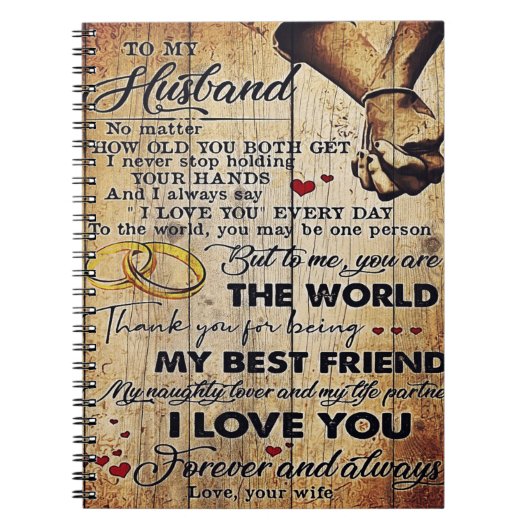 TO MY
Husband
No matter
HOW OLD YOU BOTH GET
I never stop holding
YOUR HANDS
And I always say
" I LOVE YOU" EVERY DAY
To the world, you may be one person
But to me, you are
THE WORLD
Thank you for being
MY BEST FRIEND
My naughty lover and my life partne
I LOVE YOU
Forever and always
Love, your wife